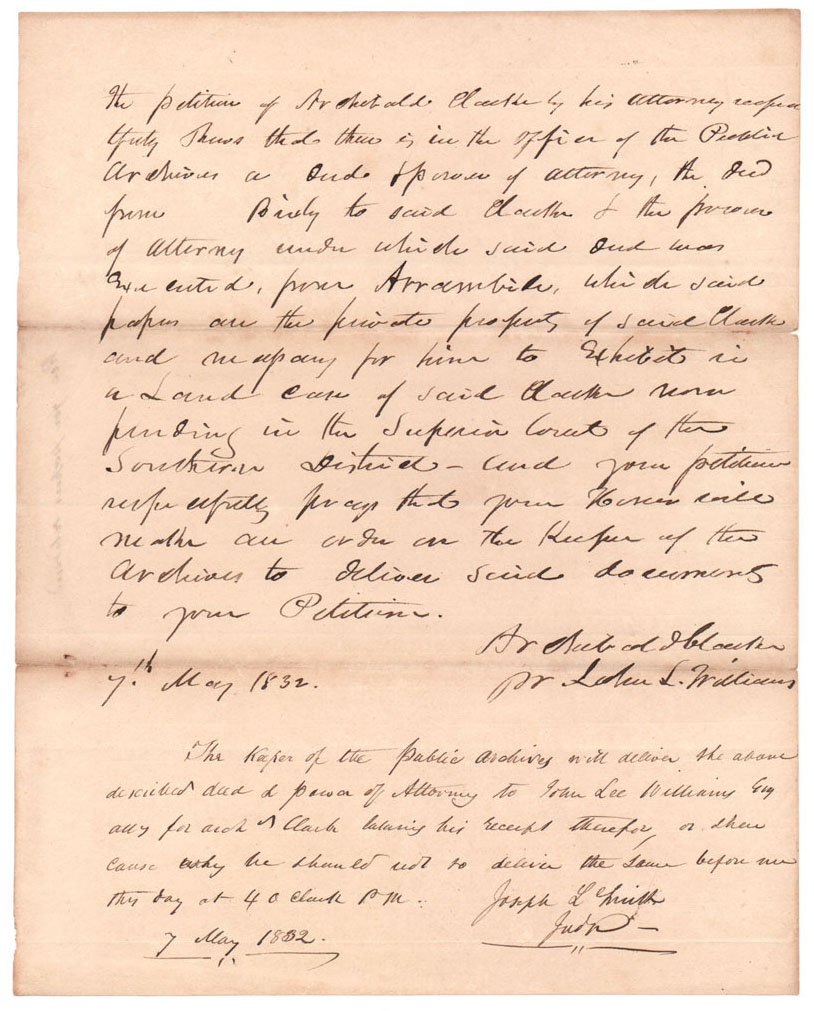 The petition of Archibald Clarke by his attorney respec
tfuly Shews that there is in the office of the Public
Archives a Deed & power of attorney, the Deed
from to said Clarke & the power
of attorney under which said Deed was
Executed, from Arrambide, which said
papers are the private property of said Clarke
and necessary for him to Exhibit in
a Land case of said Clarke now
pending in the Superior Court of the
Southern District – and your petitioner
respectfully prays that your Honor will
make an order on the Keeper of the
Archives to deliver said documents
to your Petitioner.
Archibald Clarke
7.th May 1832.
pr John L. Williams
The Keeper of the public archives will deliver the above
described deed & power of Attorney to John Lee Williams Esq
atty for Arch d Clark taking his receipt therefor, or shew
cause why he should not so deliver the same before me
this day at 4 O Clock P.M.
Joseph L Smith
Judge
7 May 1832.